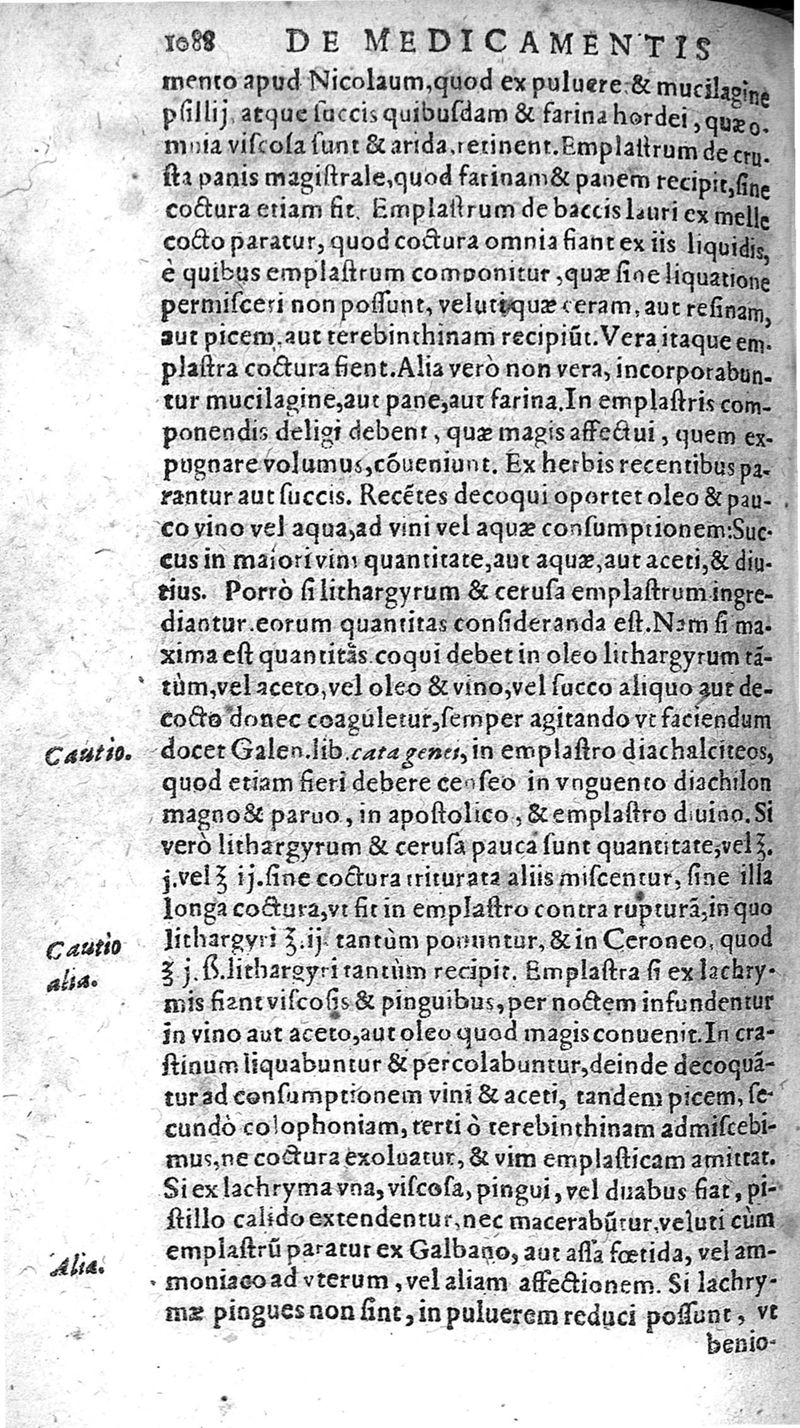 1088 DE MEDICAMENTIS
mento apud Nicolaum,quod ex puluere & mucilagine
psillij, atque succis quibusdam & farina hordei, quæ o-
mnia viscosa sunt & arida, retinent. Emplastrum de cru-
sta panis magistrale,quod farinam & panem recipit,sine
coctura etiam fit. Emplastrum de baccis lauri ex melle
cocto paratur, quod coctura omnia fiant ex iis liquidis,
è quibus emplastrum componitur, quæ sine liquatione
permisceri non possunt, veluti quæ ceram, aut resinam,
aut picem, aut terebinthinam recipiũt. Vera itaque em-
plastra coctura fient. Alia verò non vera, incorporabun-
tur mucilagine,aut pane,aut farina. In emplastris com-
ponendis deligi debent, quæ magis affectui, quem ex-
pugnare volumus,cõueniunt. Ex herbis recentibus pa-
rantur aut succis. Recẽtes decoqui oportet oleo & pau-
co vino vel aqua,ad vini vel aquæ consumptionem:Suc-
cus in maiori vini quantitate,aut aquæ,aut aceti,& diu-
tius. Porrò si lithargyrum & cerusa emplastrum ingre-
diantur.eorum quantitas consideranda est. Nam si ma-
xima est quantitas coqui debet in oleo lithargyrum tã-
tùm,vel aceto,vel oleo & vino,vel succo aliquo aut de-
cocto donec coaguletur,semper agitando vt faciendum
Cautio. docet Galen.lib.cata genes, in emplastro diachalciteos,
quod etiam fieri debere censeo in vnguento diachilon
magno & paruo, in apostolico, & emplastro diuino. Si
verò lithargyrum & cerusa pauca sunt quantitate,vel ℥.
j.vel ℥ ij.sine coctura triturata aliis miscentur, sine illa
longa coctura,vt fit in emplastro contra rupturã,in quo
Cautio lithargyri ℥.ij. tantùm ponuntur, & in Ceroneo, quod
alia. ℥ j. ß.lithargyri tantùm recipit. Emplastra si ex lachry-
mis fiant viscosis & pinguibus, per noctem infundentur
in vino aut aceto,aut oleo quod magis conuenit. In cra-
stinum liquabuntur & percolabuntur,deinde decoquã-
tur ad consumptionem vini & aceti, tandem picem, se-
cundò colophoniam, tertiò terebinthinam admiscebi-
mus,ne coctura exoluatur, & vim emplasticam amittat.
Si ex lachryma vna, viscosa, pingui, vel duabus fiat, pi-
stillo calido extendentur,nec macerabũtur,veluti cùm
Alia. emplastrũ paratur ex Galbano, aut assa fœtida, vel am-
moniaco ad vterum, vel aliam affectionem. Si lachry-
mæ pingues non sint, in puluerem reduci possunt, vt
benio-